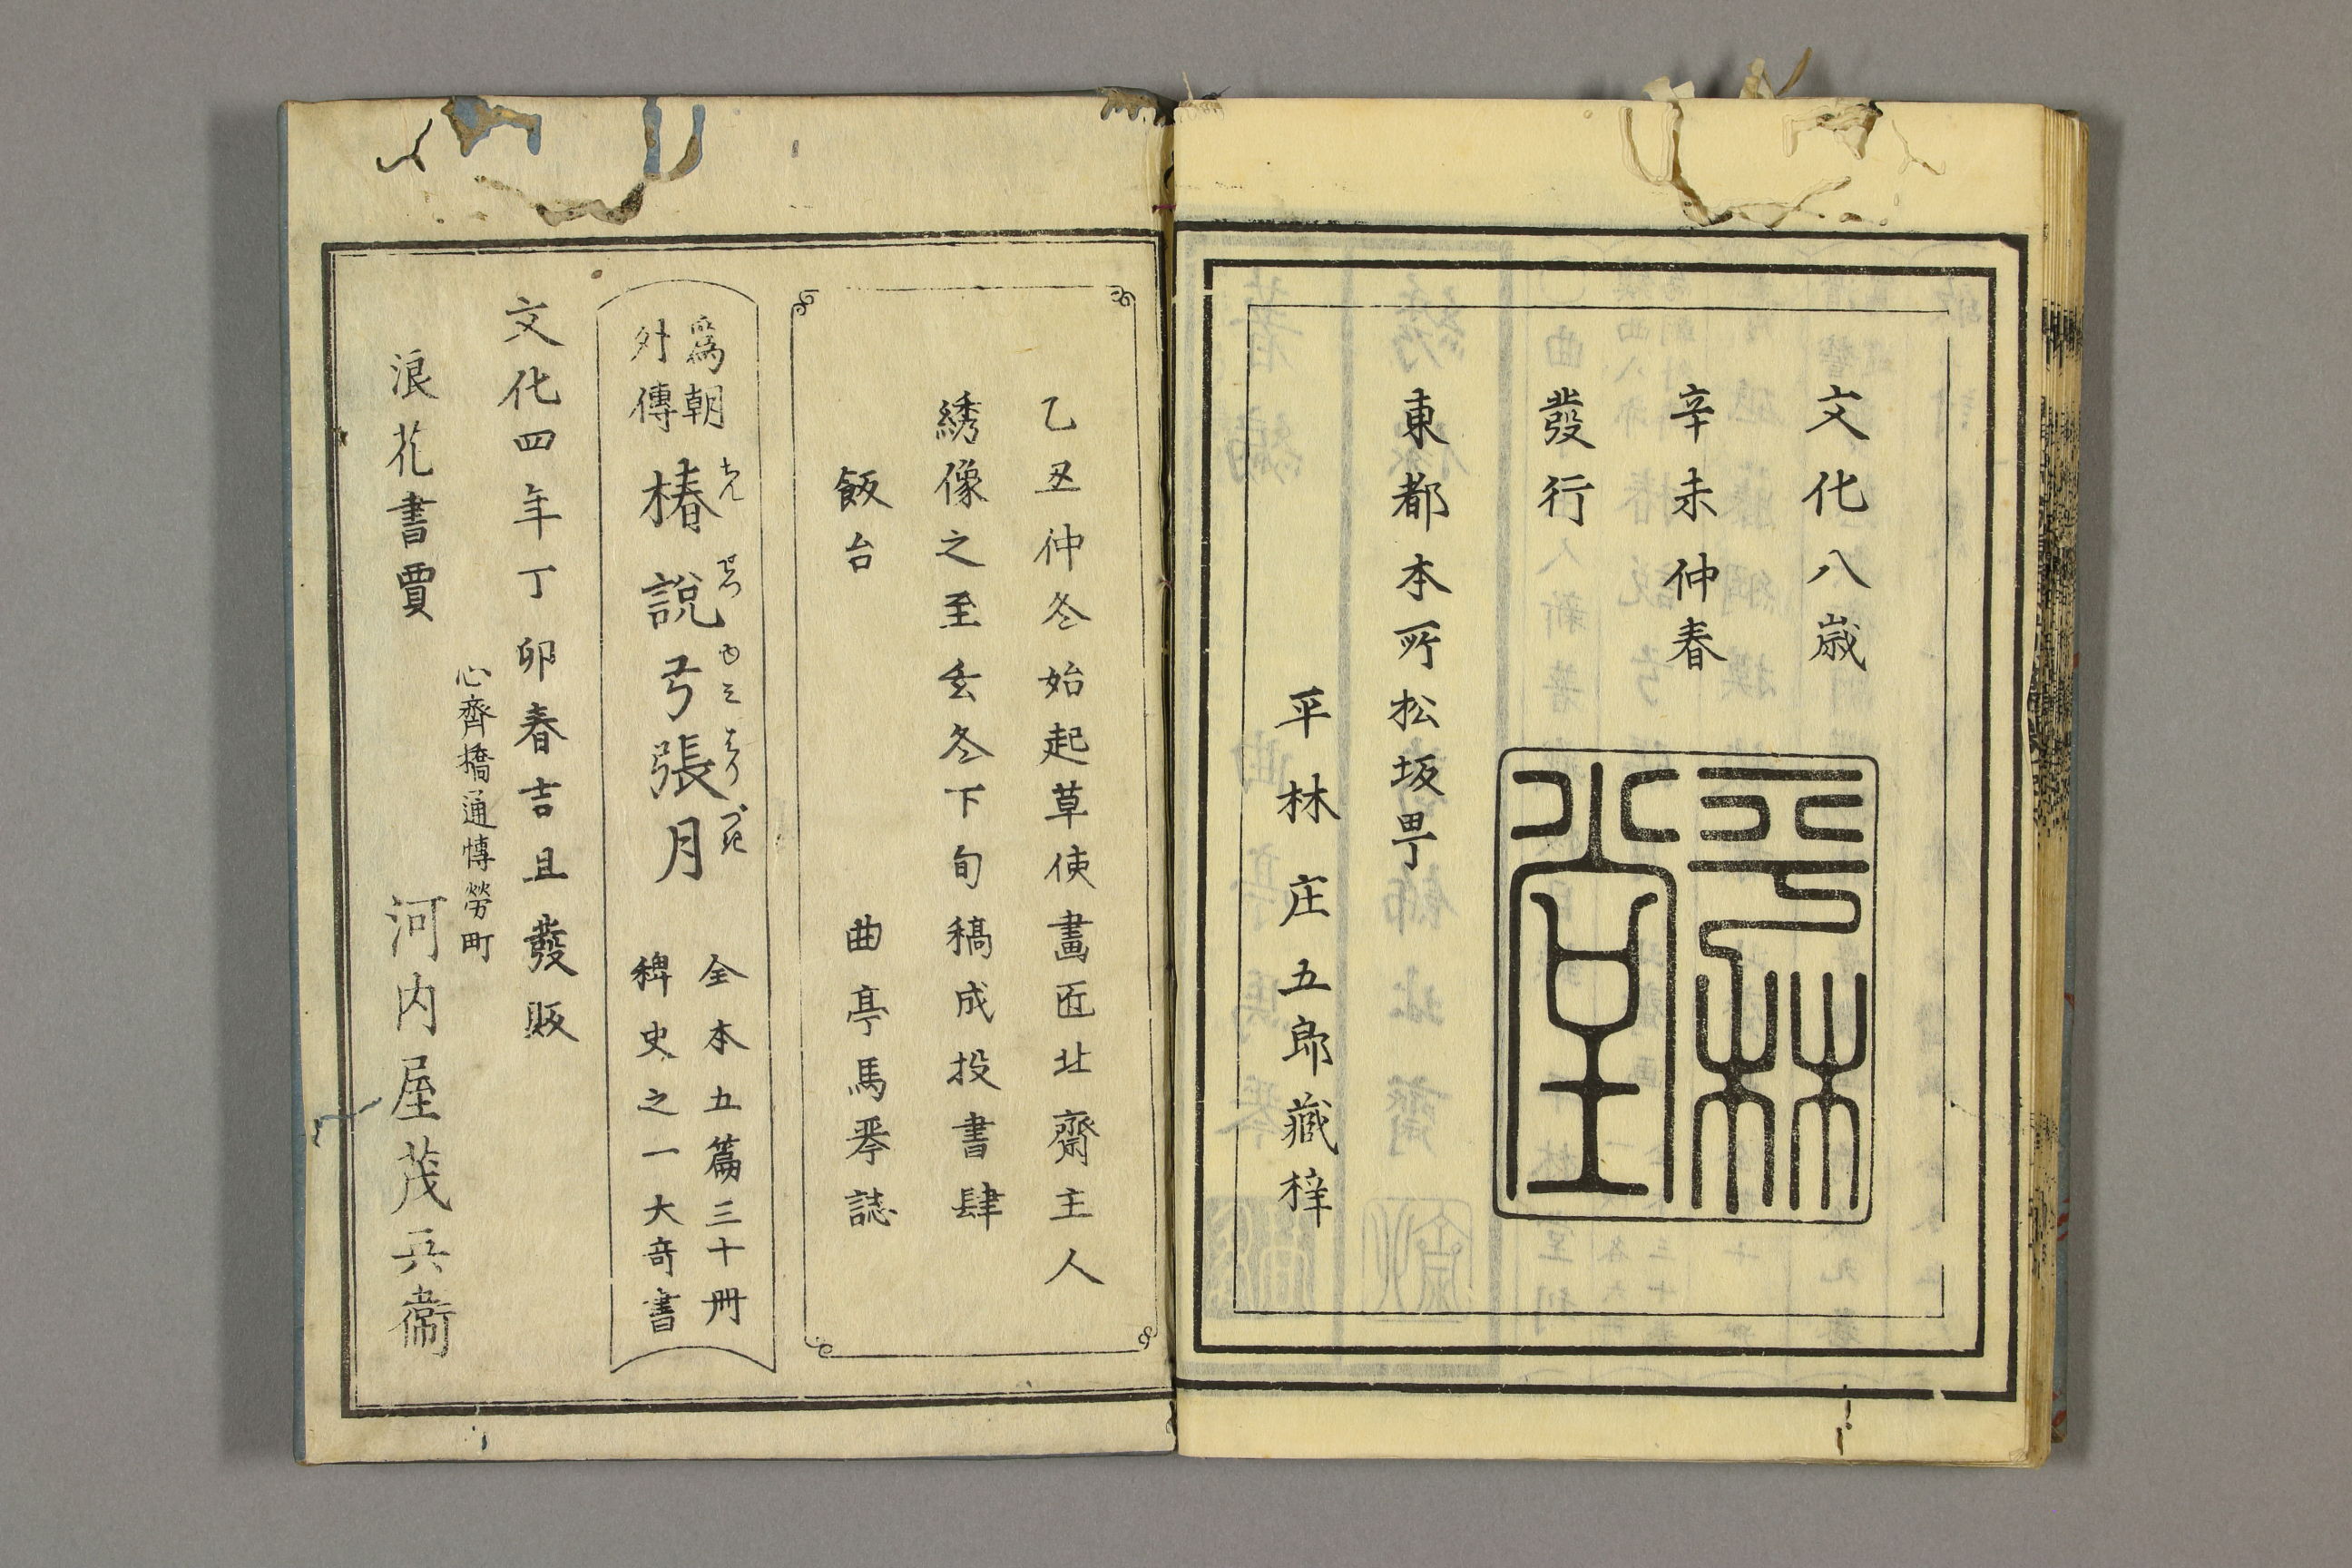 文化八歳
辛未仲春
發行
平林堂
東都本所松坂町
平林庄五郎藏梓
乙丑仲冬始起草使畫匠北齋主人
綉像之至玄冬下旬稿成投書肆
飯台 曲亭馬琴誌
爲朝
外傳
椿說弓張月
ちんせつゆみはりづき
全本五篇三十冊
稗史之一大奇書
文化四年丁卯春吉旦發販
心齊橋通博勞町
浪花書賈 河内屋茂兵衞